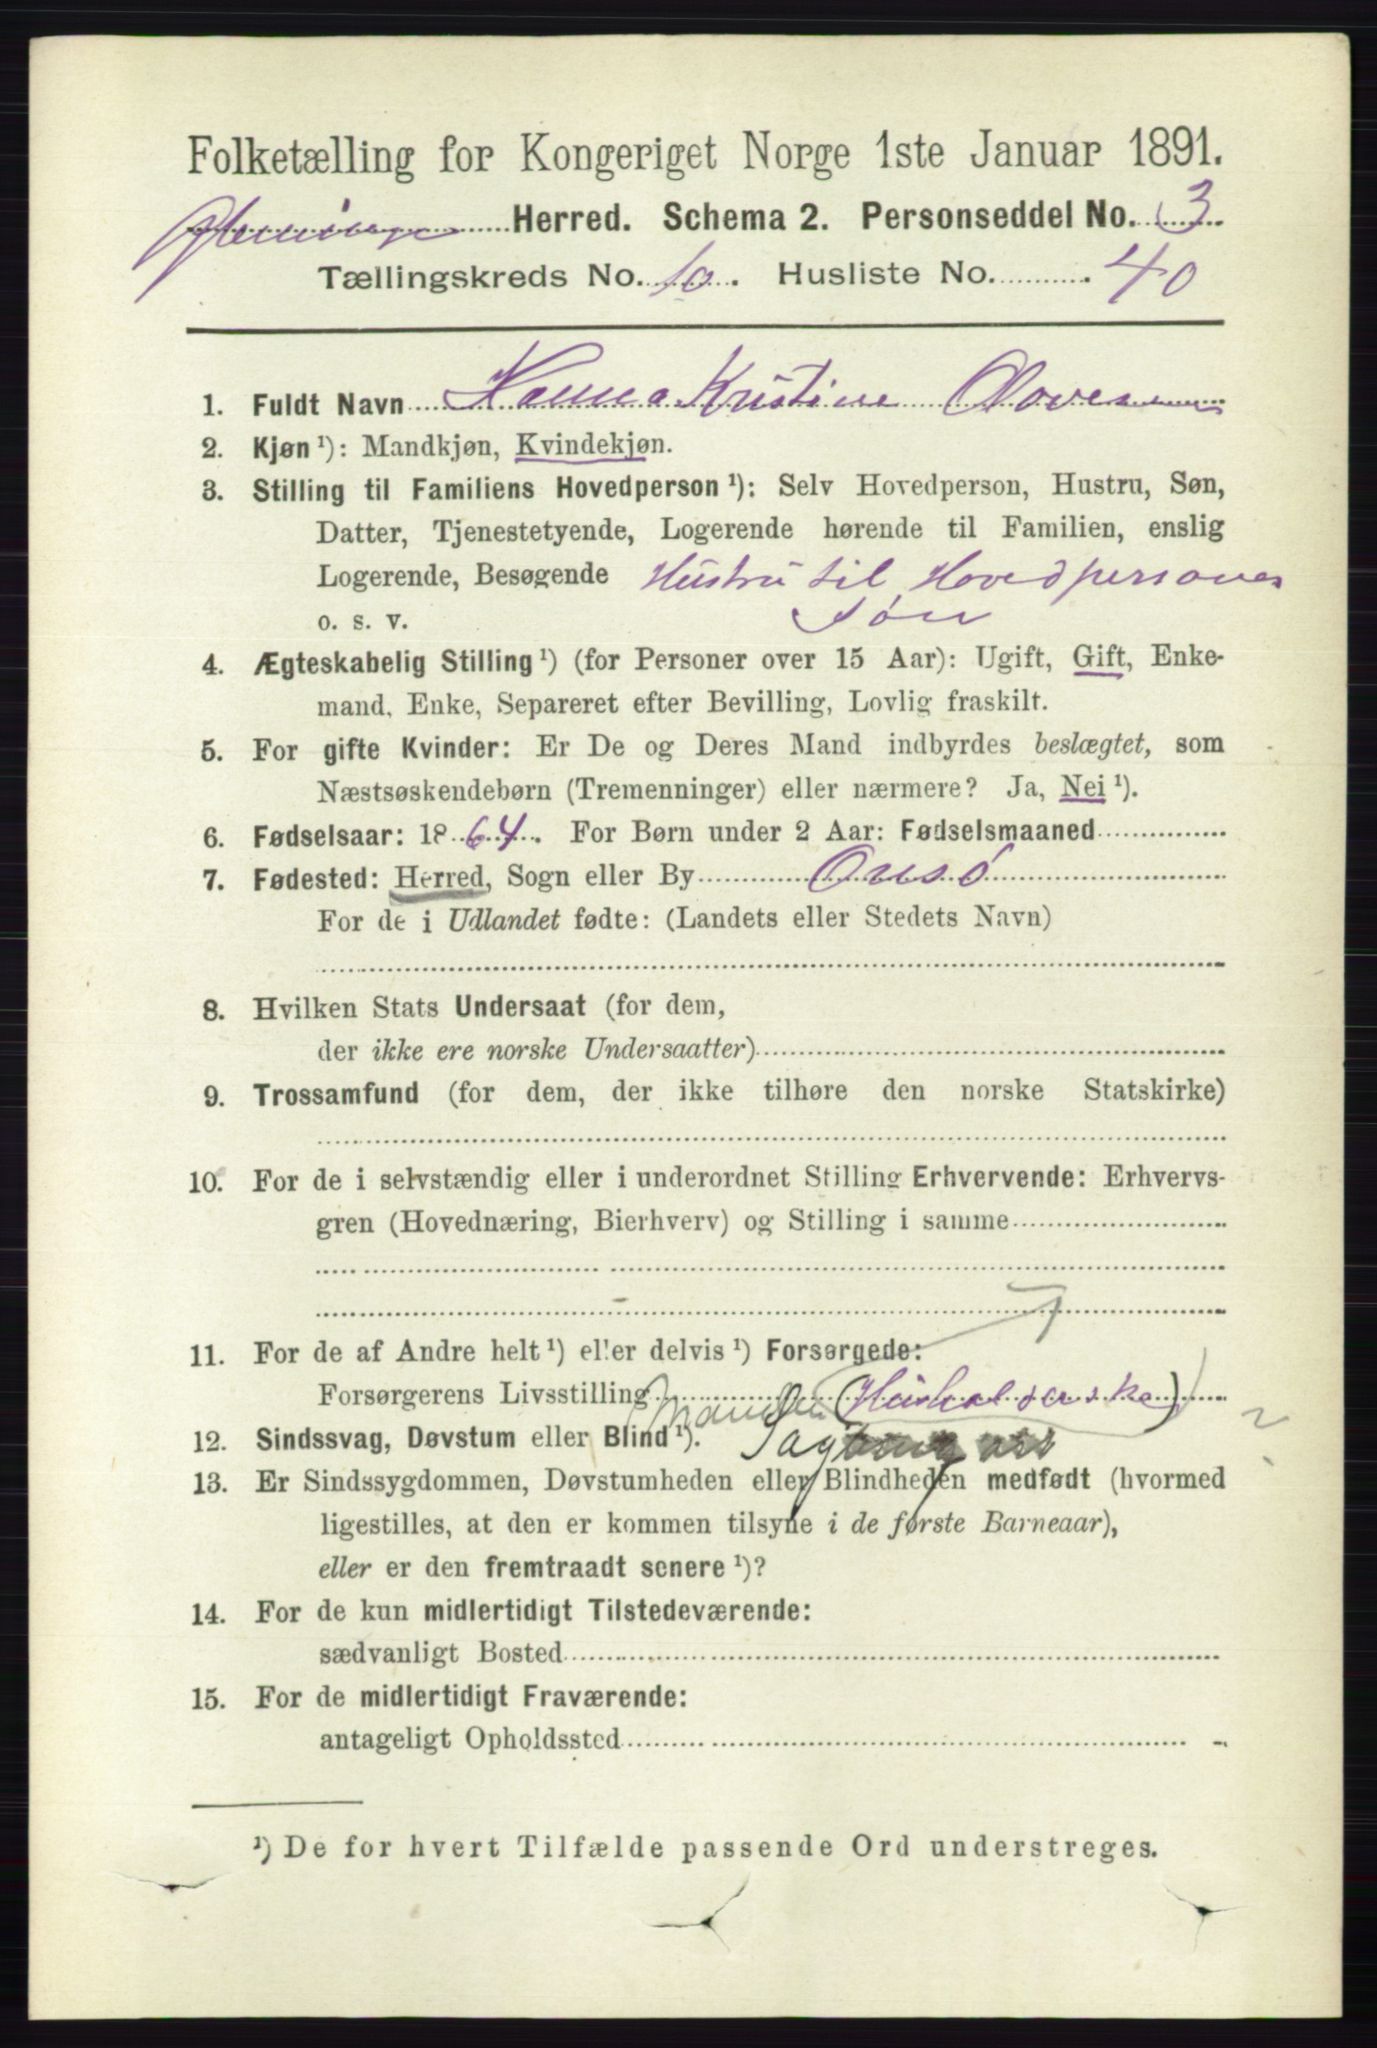 Folketælling for Kongeriget Norge 1ste Januar 1891.
Glemminge Herred. Schema 2. Personseddel No. 3
Tællingskreds No. 10. Husliste No. 40
1. Fuldt Navn Hanna Kristine
2. Kjøn ¹): Mandkjøn, Kvindekjøn.
3. Stilling til Familiens Hovedperson ¹): Selv Hovedperson, Hustru, Søn,
Datter, Tjenestetyende, Logerende hørende til Familien, enslig
Logerende, Besøgende Hustru til Hovedpersonens
o. s. v. Søn
4. Ægteskabelig Stilling ¹) (for Personer over 15 Aar): Ugift, Gift, Enke-
mand, Enke, Separeret efter Bevilling, Lovlig fraskilt.
5. For gifte Kvinder: Er De og Deres Mand indbyrdes beslægtet, som
Næstsøskendebørn (Tremenninger) eller nærmere? Ja, Nei ¹).
6. Fødselsaar: 1864. For Børn under 2 Aar: Fødselsmaaned
7. Fødested: Herred, Sogn eller By Onsö
For de i Udlandet fødte: (Landets eller Stedets Navn)
8. Hvilken Stats Undersaat (for dem,
der ikke ere norske Undersaatter)
9. Trossamfund (for dem, der ikke tilhøre den norske Statskirke)
10. For de i selvstændig eller i underordnet Stilling Erhvervende: Erhvervs-
gren (Hovednæring, Bierhverv) og Stilling i samme
11. For de af Andre helt ¹) eller delvis ¹) Forsørgede:
Forsørgerens Livsstilling (Husholderske)
12. Sindssvag, Døvstum eller Blind ¹).
13. Er Sindssygdommen, Døvstumheden eller Blindheden medfødt (hvormed
ligestilles, at den er kommen tilsyne i de første Barneaar),
eller er den fremtraadt senere ¹)?
14. For de kun midlertidigt Tilstedeværende:
sædvanligt Bosted
15. For de midlertidigt Fraværende:
antageligt Opholdssted
¹) De for hvert Tilfælde passende Ord understreges.